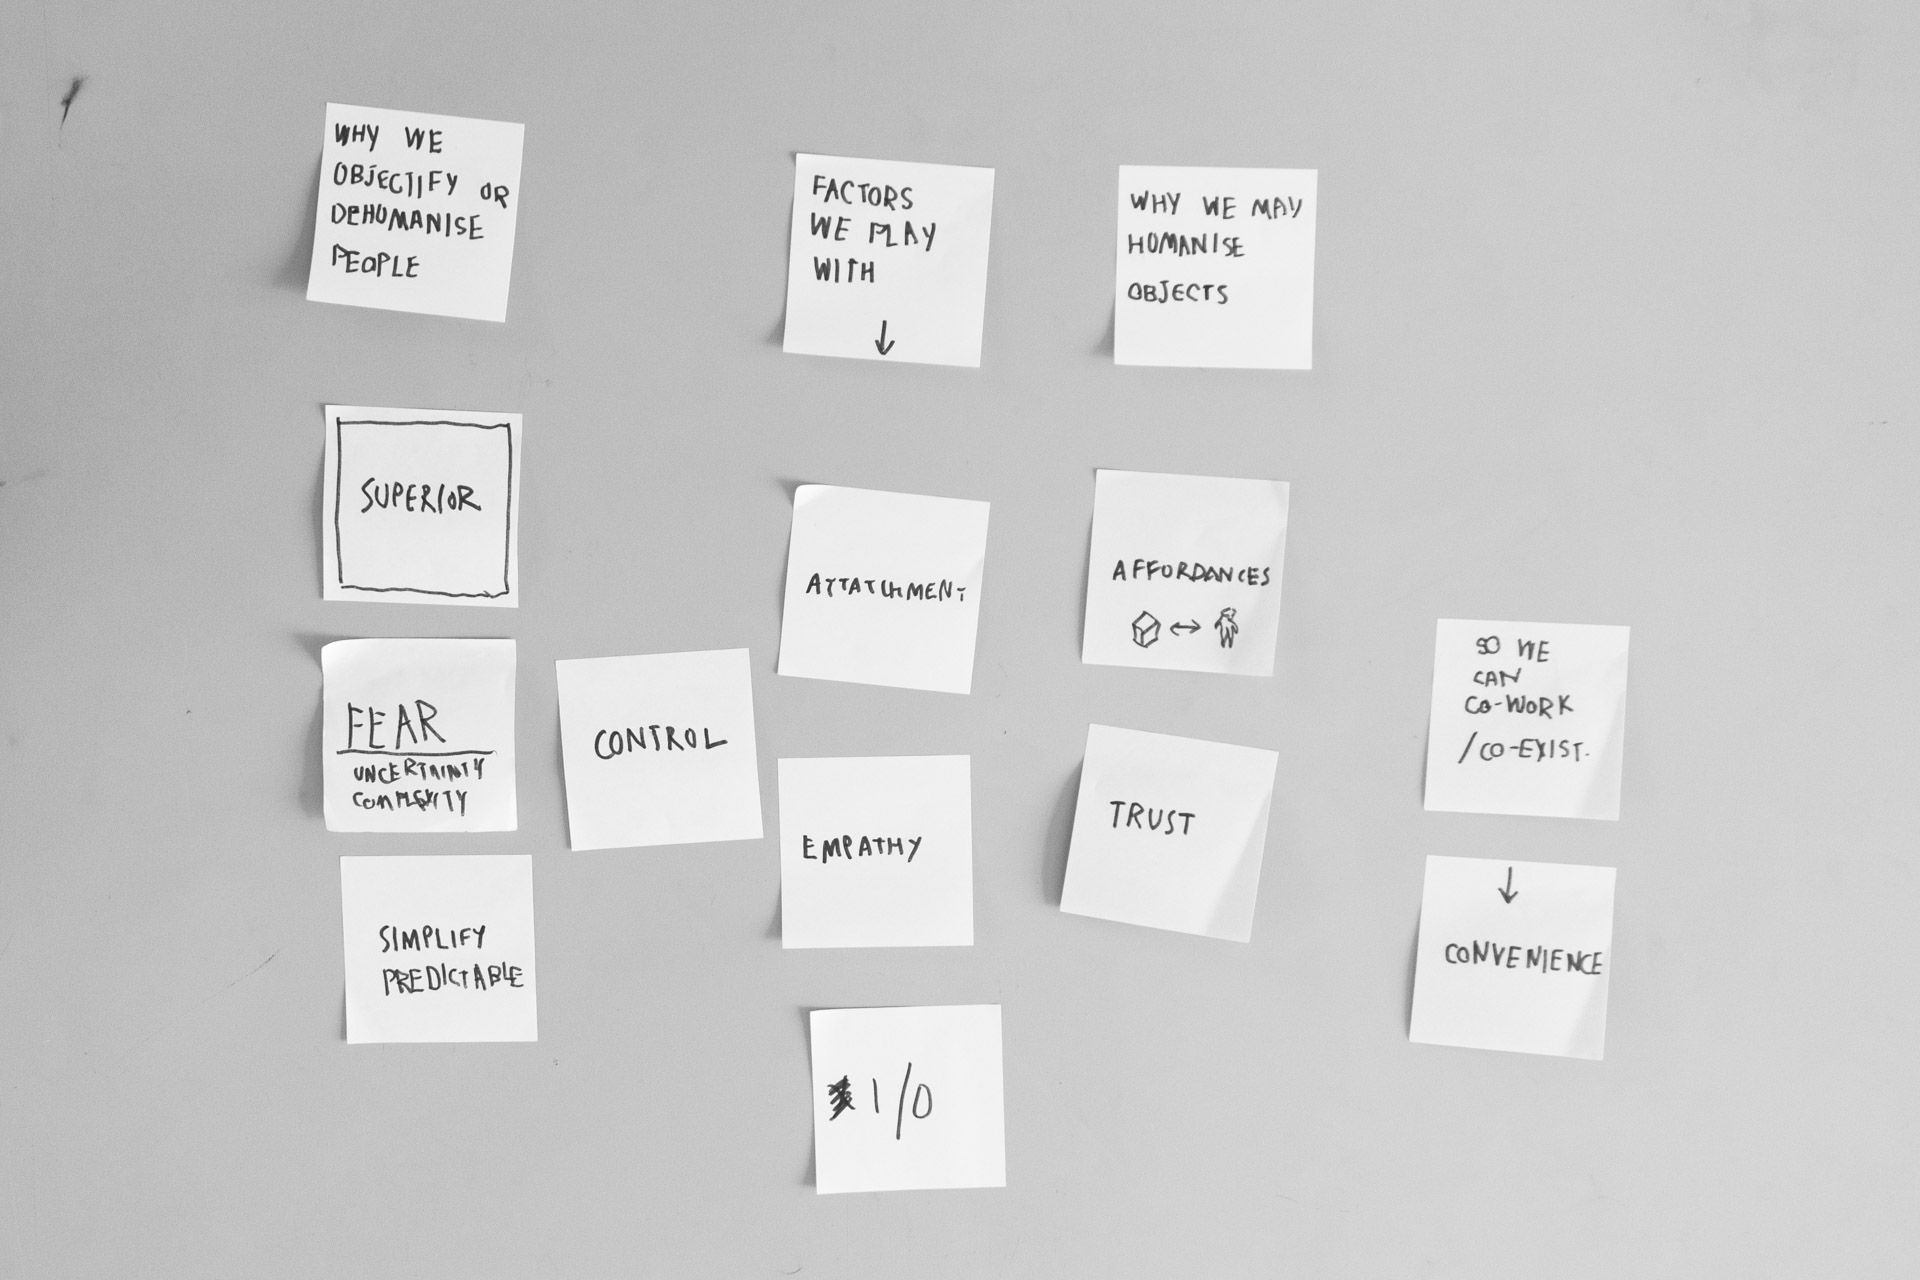 WHY WE
OBJECTIFY OR
DEHUMANISE
PEOPLE
FACTORS
WE PLAY
WITH
↓
WHY WE MAY
HUMANISE
OBJECTS
SUPERIOR
FEAR
UNCERTAINTY
COMPLEXITY
SIMPLIFY
PREDICTABLE
CONTROL
ATTATCHMENT
EMPATHY
I/O
AFFORDANCES
↔
TRUST
SO WE
CAN
CO-WORK
/CO-EXIST.
↓
CONVENIENCE